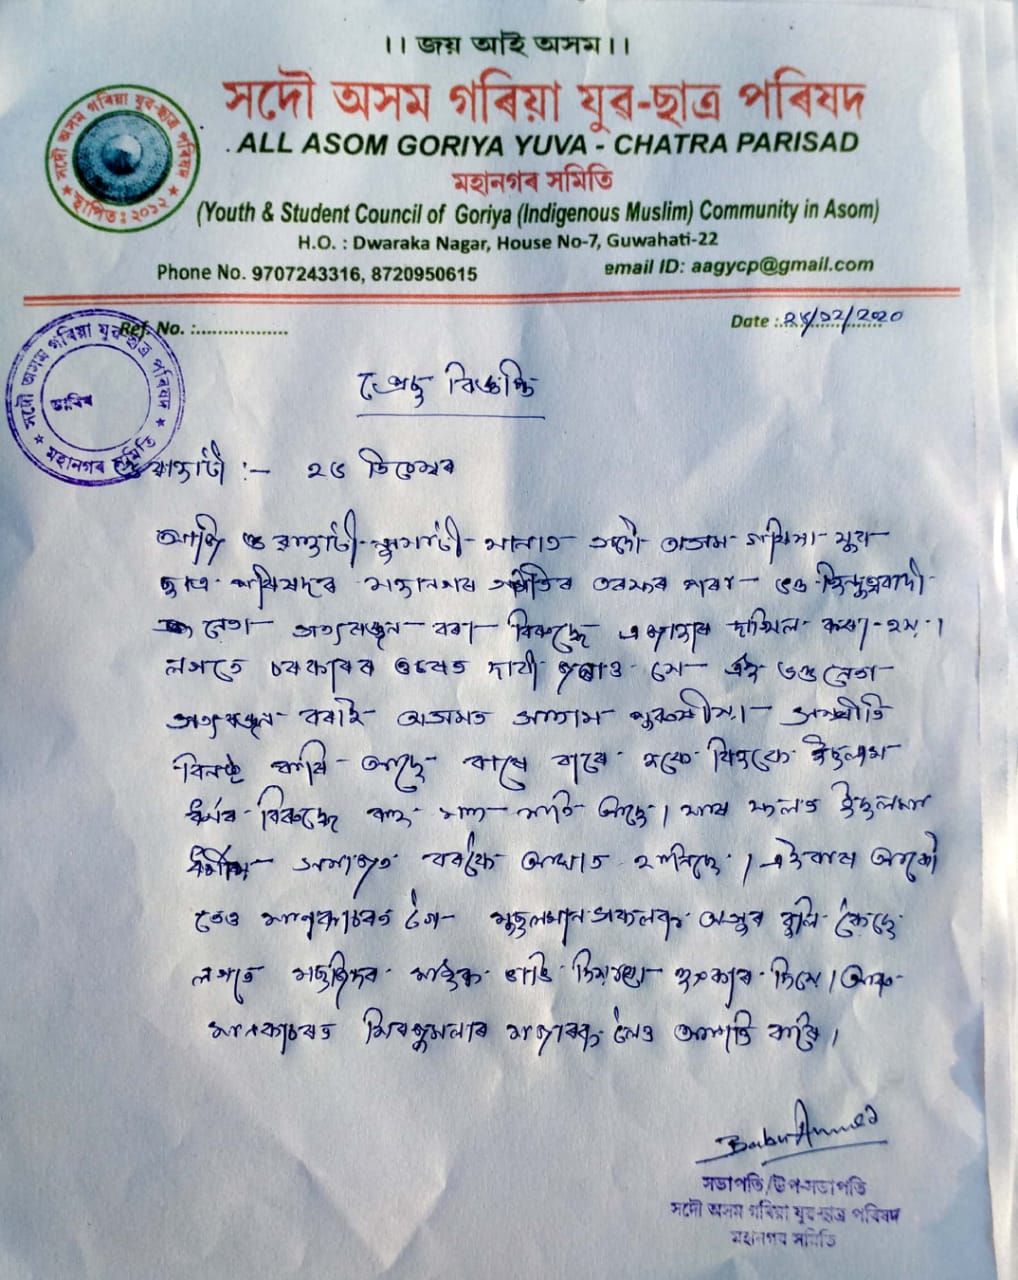 ।। জয় আই অসম ।।
সদৌ অসম গৰিয়া যুৱ-ছাত্ৰ পৰিষদ
ALL ASOM GORIYA YUVA - CHATRA PARISAD
মহানগৰ সমিতি
(Youth & Student Council of Goriya (Indigenous Muslim) Community in Asom)
H.O. : Dwaraka Nagar, House No-7, Guwahati-22
Phone No. 9707243316, 8720950615
email ID: aagycp@gmail.com
সদৌ অসম গৰিয়া যুৱ-ছাত্ৰ পৰিষদ
স্থাপিত : ২০১২
Ref. No. :
Date : ২৬/১২/২০২০
সদৌ অসম গৰিয়া যুৱ-ছাত্ৰ পৰিষদ
মহানগৰ সমিতি
প্ৰেছ বিজ্ঞপ্তি
গুৱাহাটী :- ২৬ ডিচেম্বৰ
আজি গুৱাহাটী সদৌ অসম গৰিয়া যুৱ
ছাত্ৰ পৰিষদৰ মহানগৰ সমিতিৰ তৰফৰ পৰা হিন্দুত্ববাদী
নেতা সত্যৰঞ্জন বৰা বিৰুদ্ধে এজাহাৰ দাখিল কৰা হয়।
লগতে চৰকাৰৰ ওচৰত দাবী যে এই ভণ্ড নেতা
সত্যৰঞ্জন বৰাই অসমত সম্প্ৰীতি
বিনষ্ট কৰি আছে বাৰে বাৰে ইছলাম
ধৰ্মৰ বিৰুদ্ধে আছে। যাৰ ফলত ইছলাম
সমাজত বৰকৈ আঘাত হানিছে। এইবাৰ আকৌ
তেওঁ মানকাচৰত গৈ মুছলমান সকলক অসুৰ বুলি কৈছে
লগতে মছজিদৰ মাইক ভাঙি হুংকাৰ দিয়ে। আৰু
মানকাচৰত মিৰজুমলাৰ মাজাৰক লৈও
Babu Ahmed
সভাপতি/উপ-সভাপতি
সদৌ অসম গৰিয়া যুৱ-ছাত্ৰ পৰিষদ
মহানগৰ সমিতি